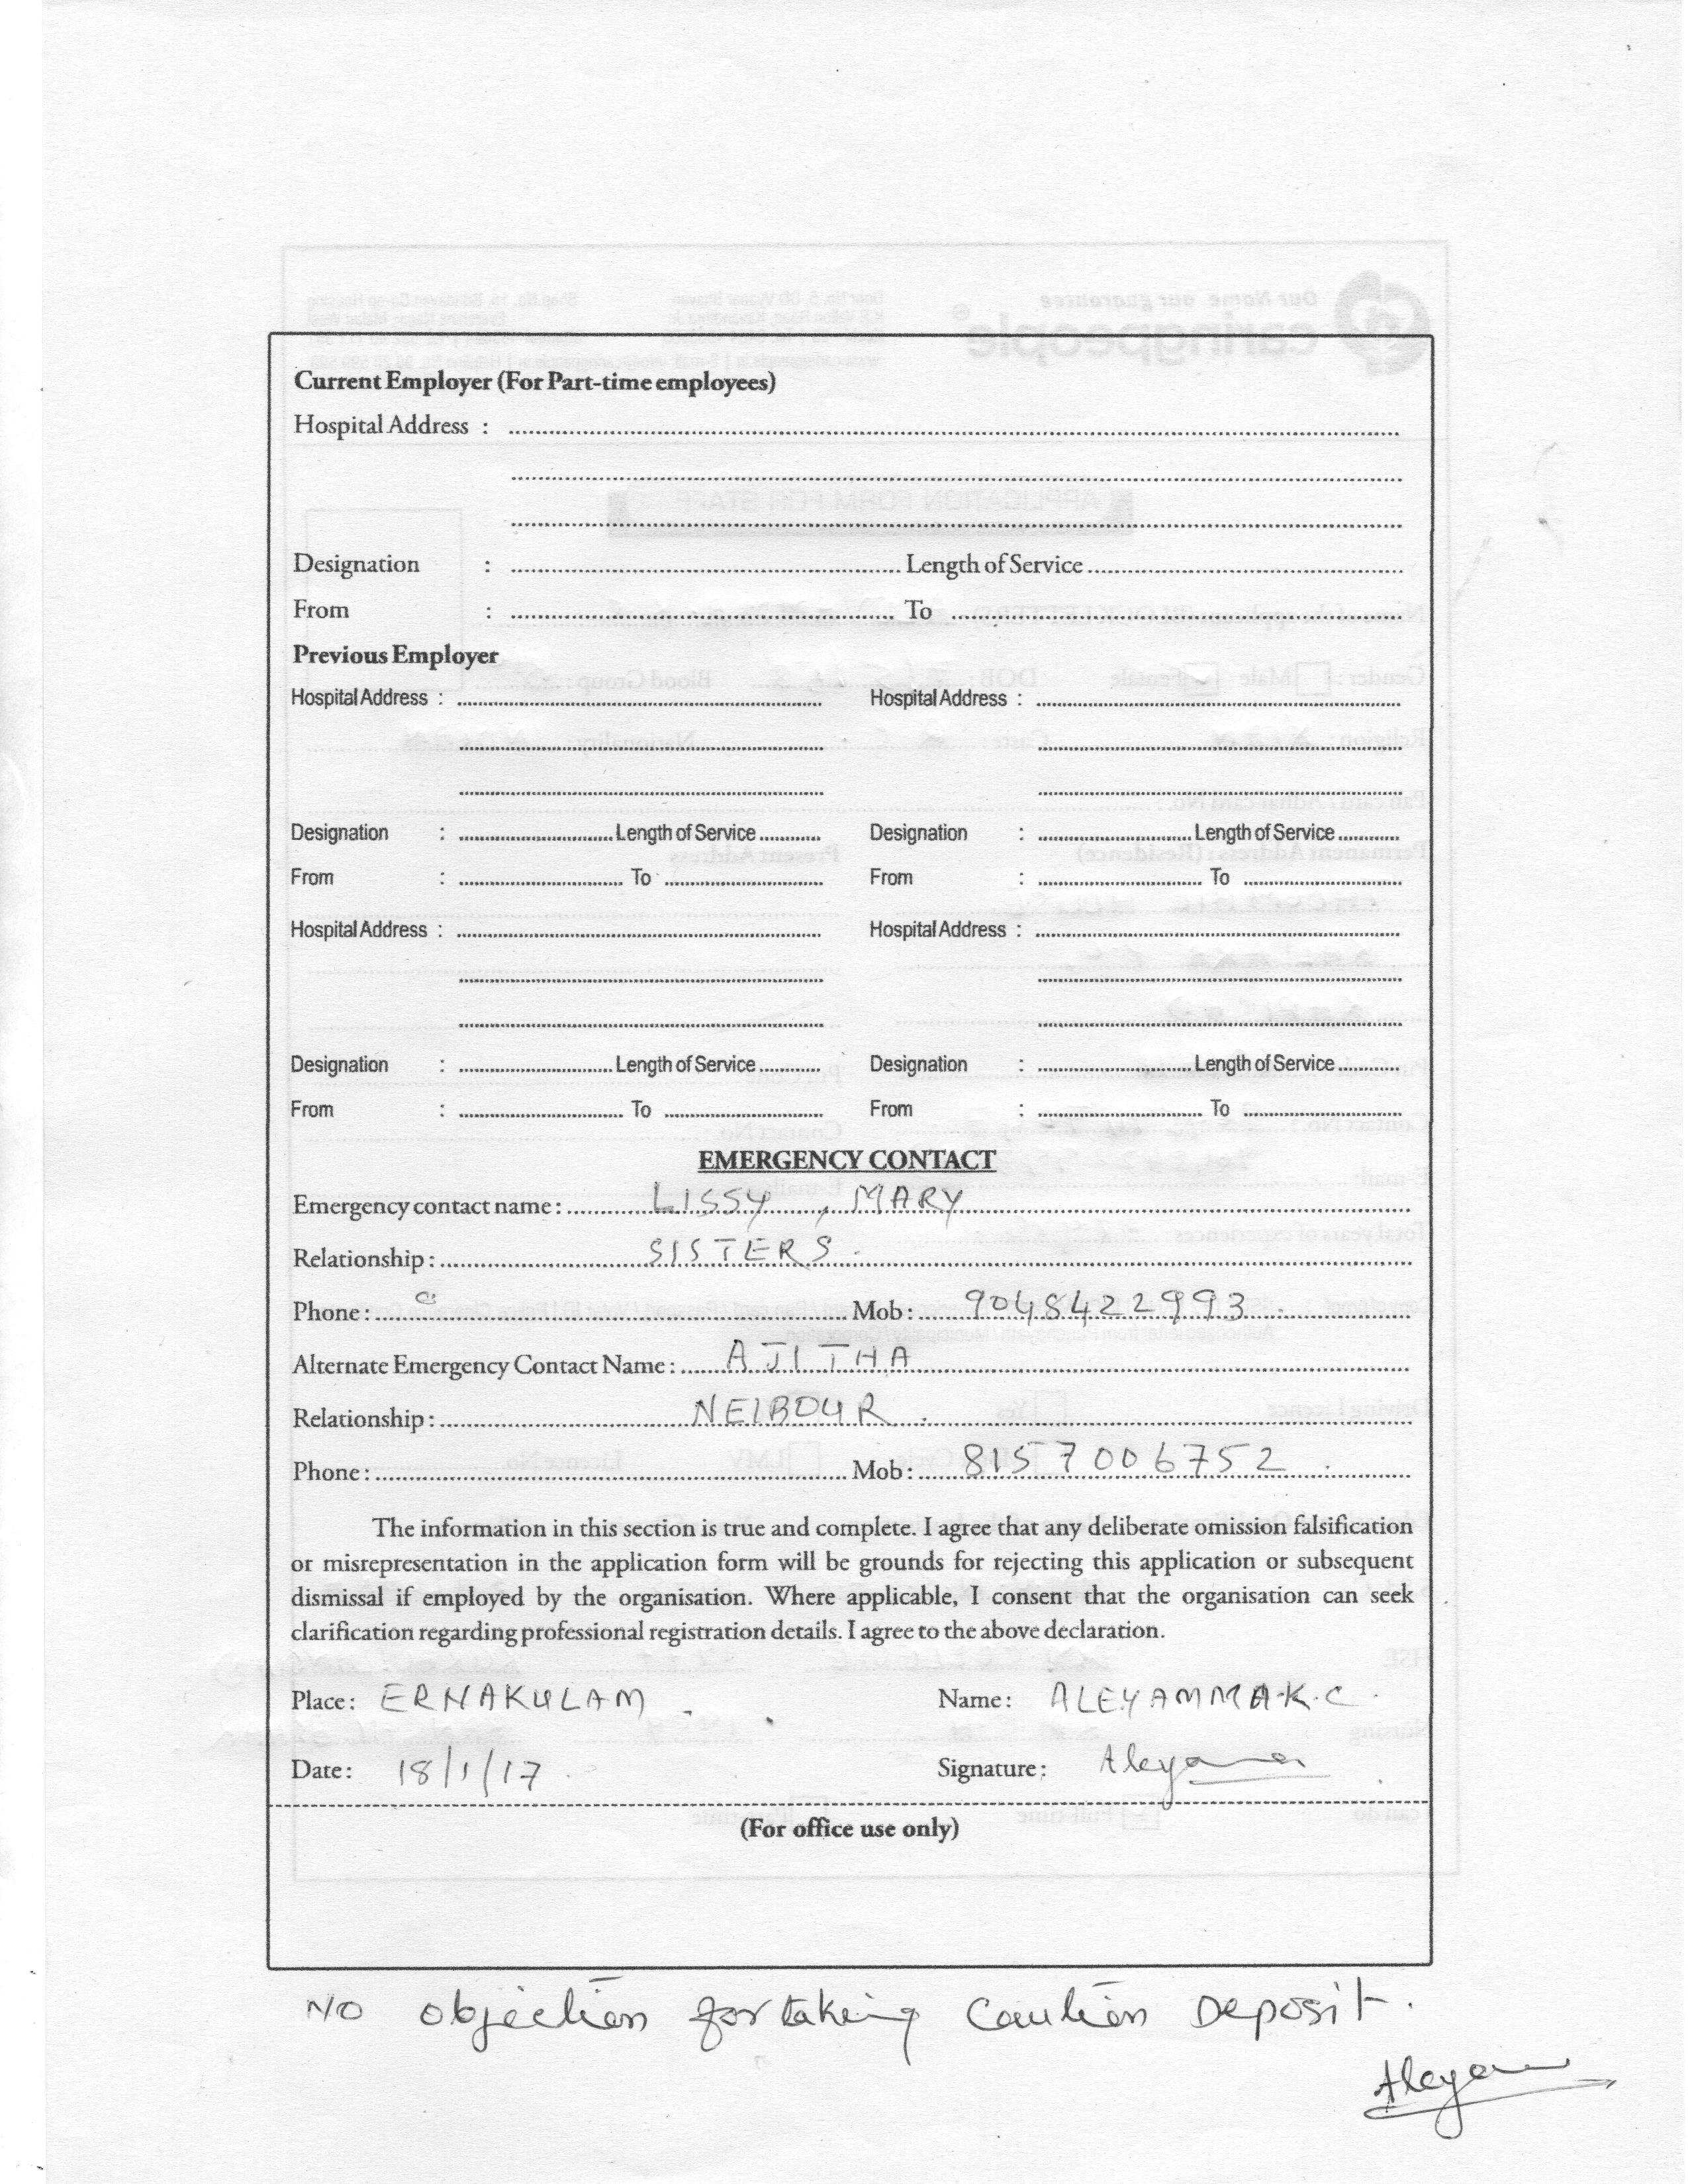 Current Employer (For Part-time employees)
Hospital Address :
Designation : Length of Service
From : To
Previous Employer
Hospital Address : Hospital Address :
Designation : Length of Service Designation : Length of Service
From : To From : To
Hospital Address : Hospital Address :
Designation : Length of Service Designation : Length of Service
From : To From : To
EMERGENCY CONTACT
Emergency contact name : LISSY , MARY
Relationship : SISTERS.
Phone : Mob : 9048422993
Alternate Emergency Contact Name : AJITHA
Relationship : NEIBOUR.
Phone : Mob : 8157006752
The information in this section is true and complete. I agree that any deliberate omission falsification
or misrepresentation in the application form will be grounds for rejecting this application or subsequent
dismissal if employed by the organisation. Where applicable, I consent that the organisation can seek
clarification regarding professional registration details. I agree to the above declaration.
Place : ERNAKULAM. Name : ALEYAMMA.K.C.
Date : 18/1/17 Signature : Aleyama
(For office use only)
NO objection for taking Caution Deposit.